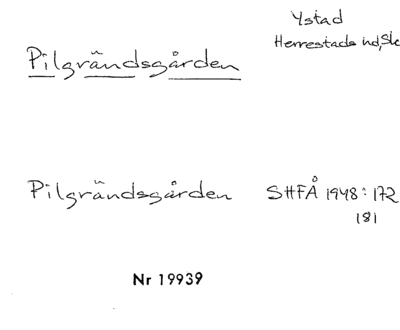 Ystad
Herrestads hd, Sk
Pilgrändsgården
Pilgrändsgården SHFÅ 1948: 172
181
Nr 19939